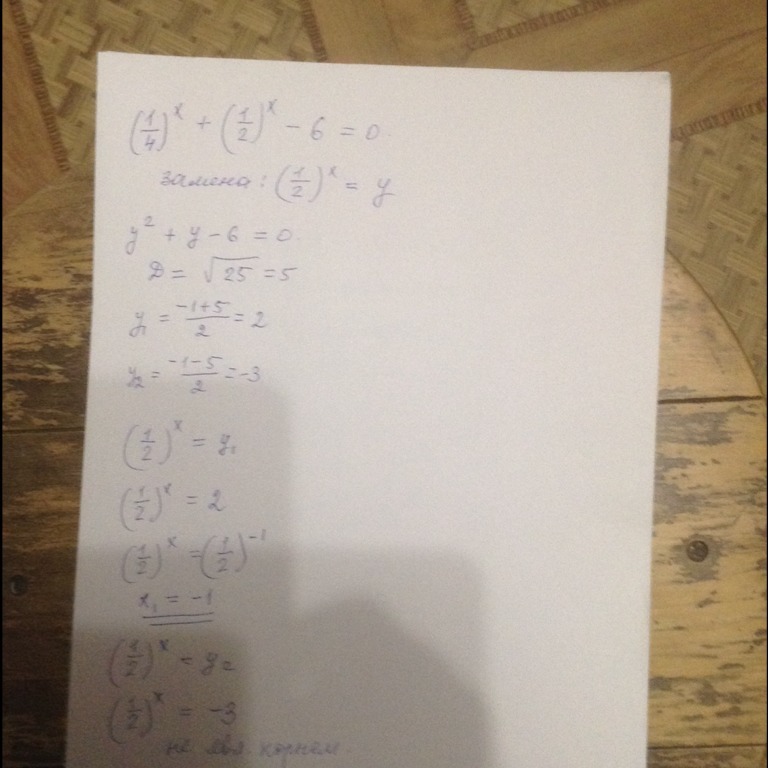 (1/4)^x + (1/2)^x - 6 = 0.
замена: (1/2)^x = y
y^2 + y - 6 = 0.
D = √25 = 5
y₁ = (-1+5)/2 = 2
y₂ = (-1-5)/2 = -3
(1/2)^x = y₁
(1/2)^x = 2
(1/2)^x = (1/2)^-1
x₁ = -1
(1/2)^x = y₂
(1/2)^x = -3
не явл. корнем.